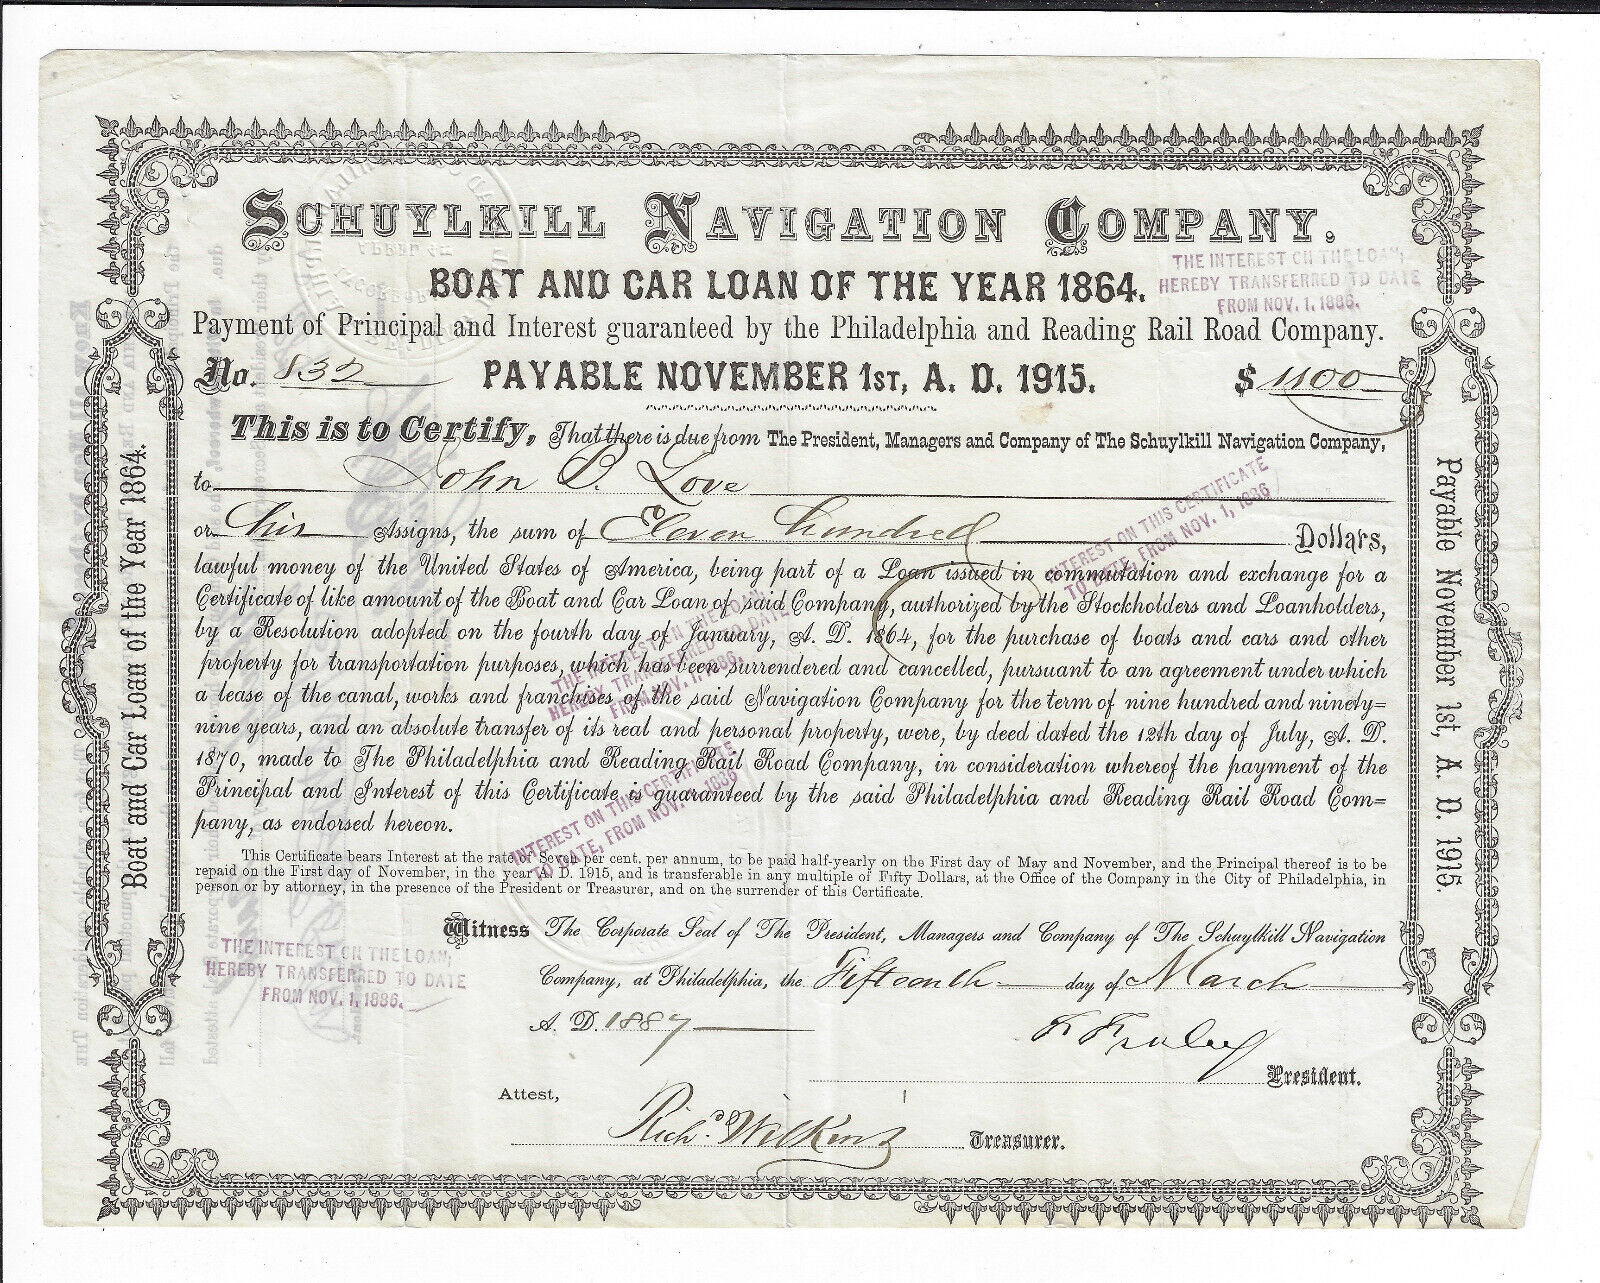 SCHUYLKILL NAVIGATION COMPANY.
BOAT AND CAR LOAN OF THE YEAR 1864.
THE INTEREST ON THE LOAN,
HEREBY TRANSFERRED TO DATE
FROM NOV. 1, 1886.
Payment of Principal and Interest guaranteed by the Philadelphia and Reading Rail Road Company.
No. 832 PAYABLE NOVEMBER 1ST, A. D. 1915. $ 1100
This is to Certify, That there is due from The President, Managers and Company of The Schuylkill Navigation Company,
to John B. Love
or his Assigns, the sum of Eleven hundred Dollars,
lawful money of the United States of America, being part of a Loan issued in commutation and exchange for a
Certificate of like amount of the Boat and Car Loan of said Company, authorized by the Stockholders and Loanholders,
by a Resolution adopted on the fourth day of January, A. D. 1864, for the purchase of boats and cars and other
property for transportation purposes, which has been surrendered and cancelled, pursuant to an agreement under which
a lease of the canal, works and franchises of the said Navigation Company for the term of nine hundred and ninety=
nine years, and an absolute transfer of its real and personal property, were, by deed dated the 12th day of July, A. D.
1870, made to The Philadelphia and Reading Rail Road Company, in consideration whereof the payment of the
Principal and Interest of this Certificate is guaranteed by the said Philadelphia and Reading Rail Road Com=
pany, as endorsed hereon.
INTEREST ON THIS CERTIFICATE
TO DATE, FROM NOV. 1, 1886
THE INTEREST ON THE LOAN,
HEREBY TRANSFERRED TO DATE
FROM NOV. 1, 1886.
INTEREST ON THIS CERTIFICATE
TO DATE, FROM NOV. 1, 1886
This Certificate bears Interest at the rate of Seven per cent. per annum, to be paid half-yearly on the First day of May and November, and the Principal thereof is to be
repaid on the First day of November, in the year A. D. 1915, and is transferable in any multiple of Fifty Dollars, at the Office of the Company in the City of Philadelphia, in
person or by attorney, in the presence of the President or Treasurer, and on the surrender of this Certificate.
Witness The Corporate Seal of The President, Managers and Company of The Schuylkill Navigation
Company, at Philadelphia, the Fifteenth day of March
A. D. 1887
THE INTEREST ON THE LOAN,
HEREBY TRANSFERRED TO DATE
FROM NOV. 1, 1886.
F Fraley
President.
Attest,
Richd. Wilkins
Treasurer.
Boat and Car Loan of the Year 1864.
Payable November 1st, A. D. 1915.